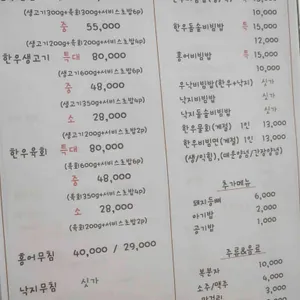 (생고기300g+육회300g+서비스초밥6p)
중 55,000
(생고기200g+육회200g+서비스초밥4p)
한우생고기 특대 80,000
(생고기600g+서비스초밥6p)
중 48,000
(생고기350g+서비스초밥4p)
소 28,000
(생고기200g+서비스초밥2p)
한우육회 특대 80,000
(육회600g+서비스초밥6p)
중 48,000
(육회350g+서비스초밥4p)
소 28,000
(육회200g+서비스초밥2p)
홍어무침 40,000 / 29,000
낙지무침 싯가
10,000
한우돌솥비빔밥 특 15,000
12,000
홍어비빔밥 특 15,000
10,000
우낙비빔밥(한우+낙지) 싯가
낙지비빔밥 싯가
낙지돌솥비빔밥 싯가
한우물회(계절) 1인 13,000
한우비빔면(계절) 1인 13,000
(생/익힘),(매운양념/간장양념)
추가메뉴
돼지등뼈 6,000
아기밥 2,000
공기밥 1,000
주류&음료
복분자 10,000
소주/맥주 4,000
막걸리